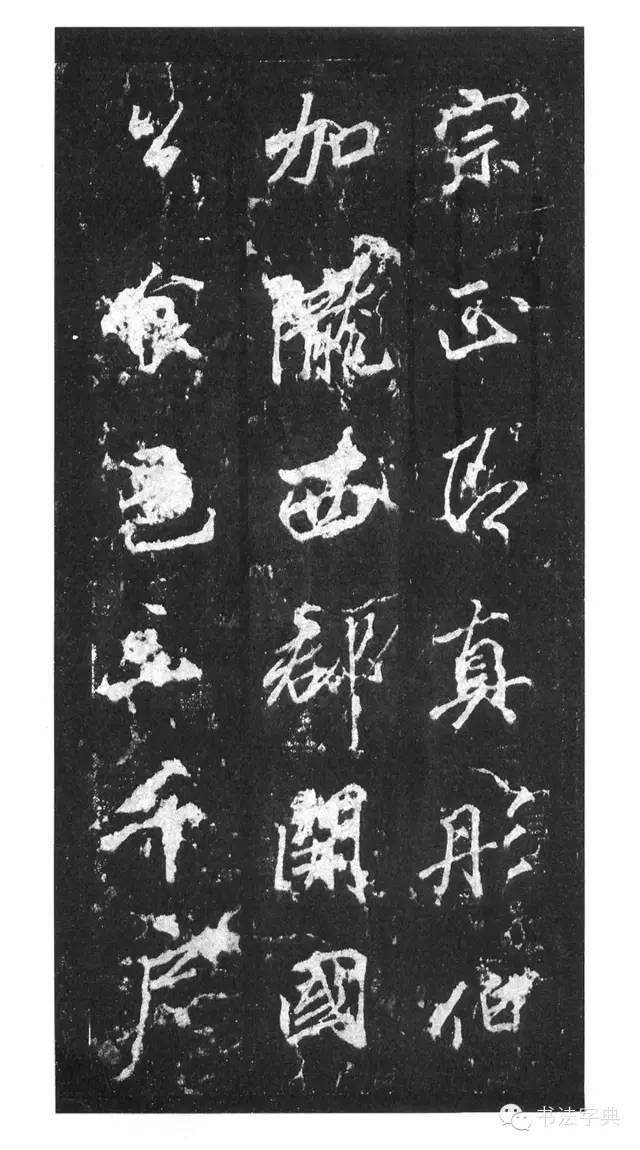 宗正即真彤伯
加隴西郡開國
公食邑二千户
書法字典